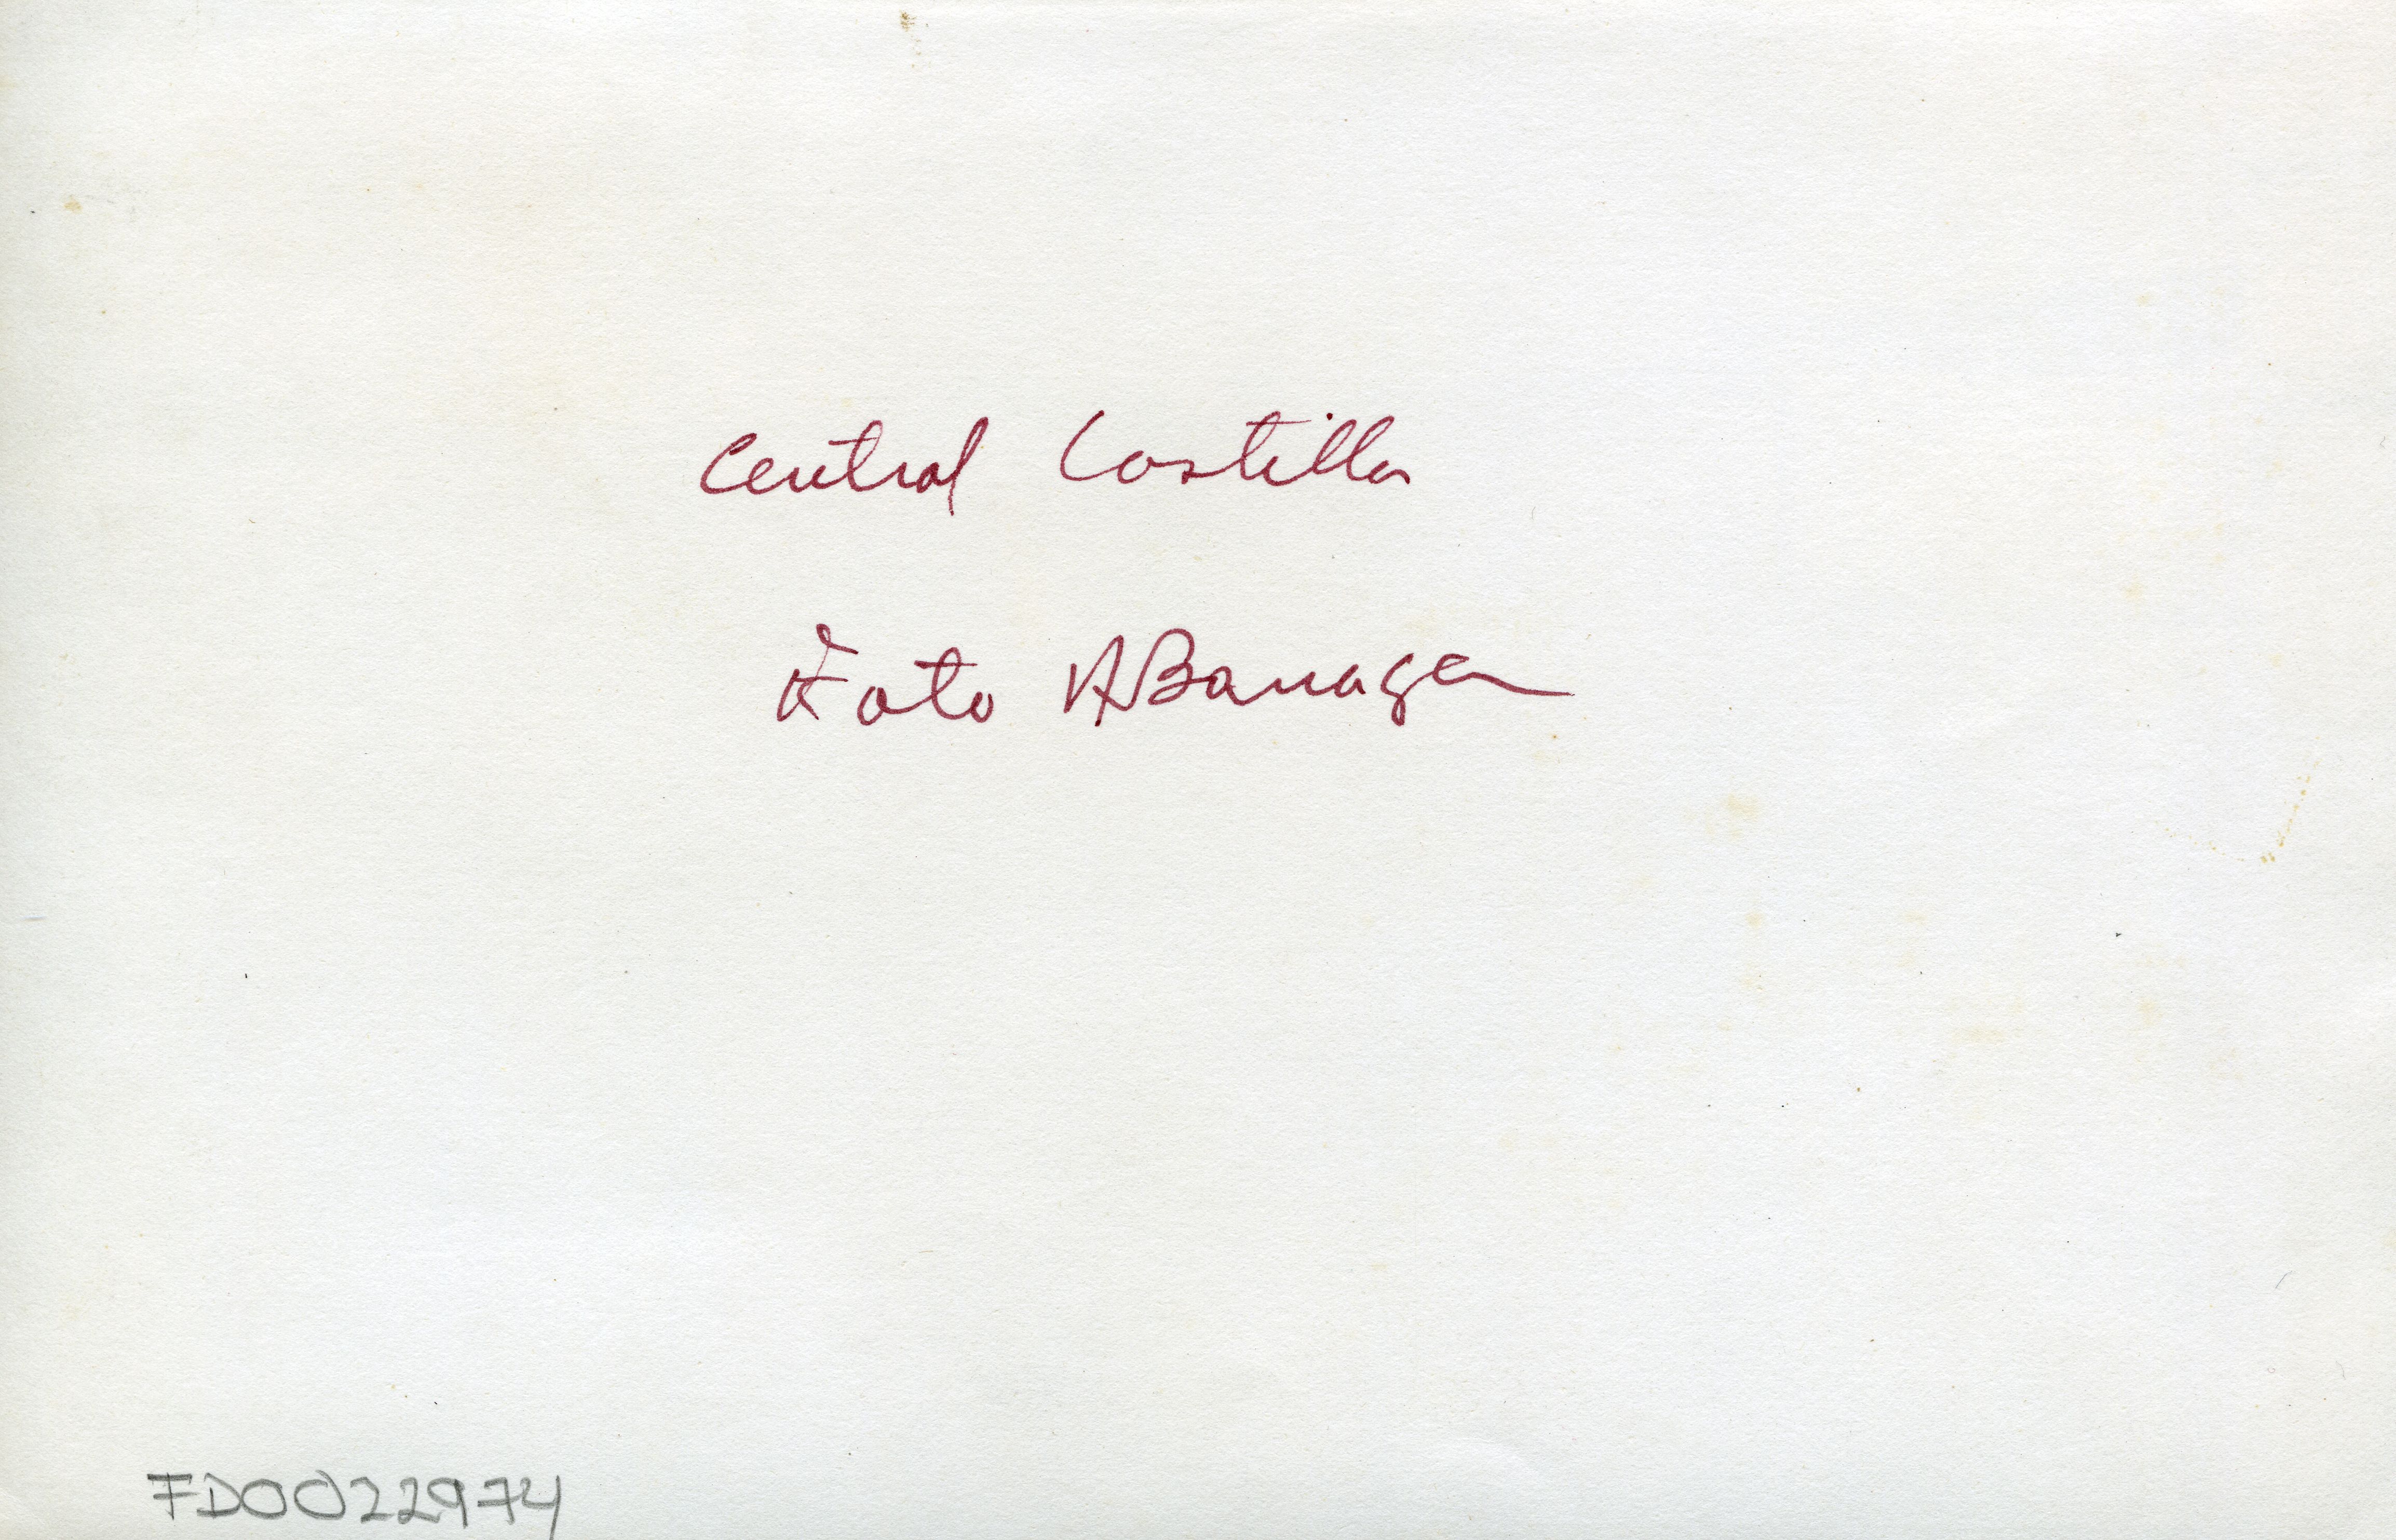 Central Costilla
Foto ABanagan
FD0022974